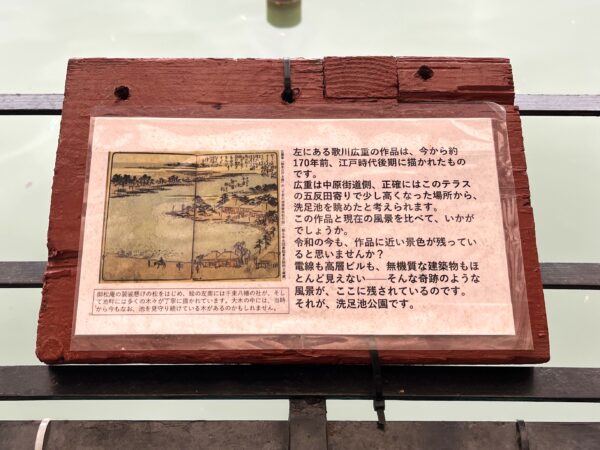 左にある歌川広重の作品は、今から約
170年前、江戸時代後期に描かれたもの
です。
広重は中原街道側、正確にはこのテラス
の五反田寄りで少し高くなった場所から、
洗足池を眺めたと考えられます。
この作品と現在の風景を比べて、いかが
でしょうか。
令和の今も、作品に近い景色が残ってい
ると思いませんか？
電線も高層ビルも、無機質な建築物もほ
とんど見えない――そんな奇跡のような
風景が、ここに残されているのです。
それが、洗足池公園です。
御松庵の袈裟懸けの松をはじめ、絵の左奥には千束八幡の社が、そし
て池畔には多くの木々が丁寧に描かれています。大木の中には、当時
から今もなお、池を見守り続けている木があるのかもしれません。